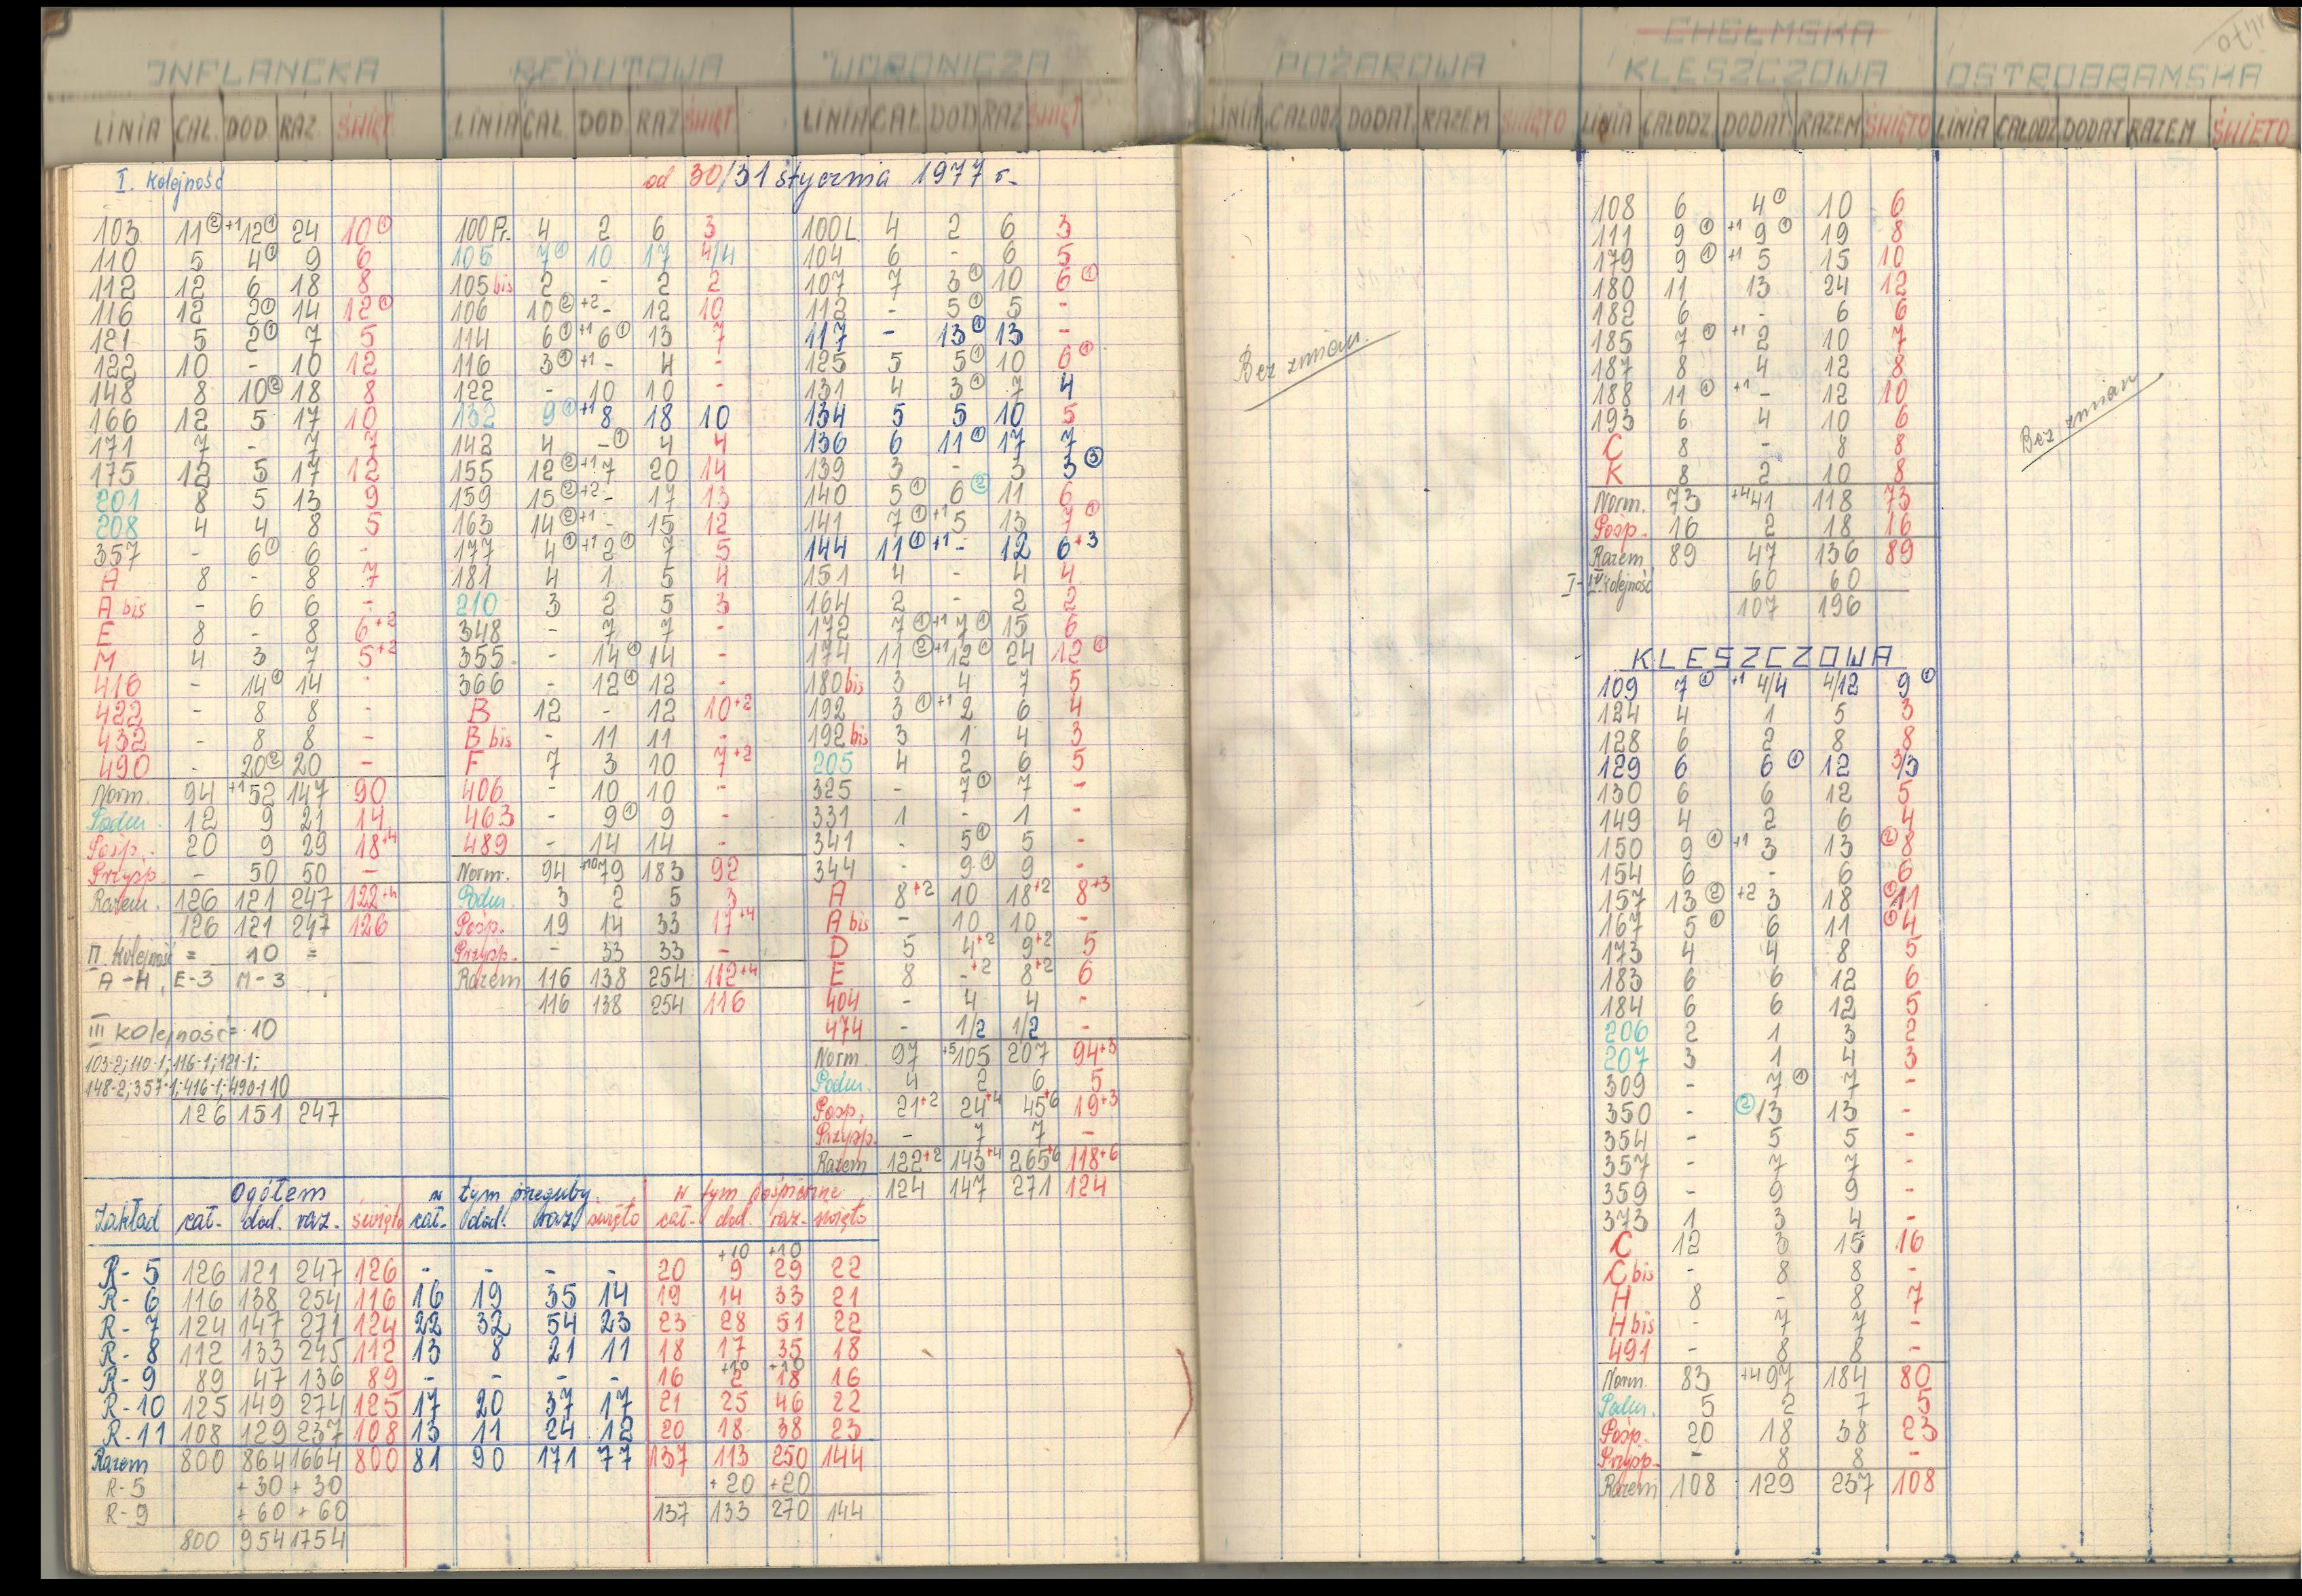 INFLANCKA
LINIA CAŁ. DOD. RAZ. ŚWIĘT
I. Kolejność
103 11② +1 12① 24 10①
110 5 4① 9 6
112 12 6 18 8
116 12 2① 14 12①
121 5 2① 7 5
122 10 - 10 12
148 8 10② 18 8
166 12 5 17 10
171 7 - 7 7
175 12 5 17 12
201 8 5 13 9
208 4 4 8 5
357 - 6① 6 -
A 8 - 8 7
A bis - 6 6 -
E 8 - 8 6+2
M 4 3 7 5+2
416 - 14① 14 -
422 - 8 8 -
432 - 8 8 -
490 - 20② 20 -
Norm. 94 +1 52 147 90
Podm. 12 9 21 14
Posp. 20 9 29 18+4
Przysp. - 50 50 -
Razem. 126 121 247 122+4
126 121 247 126
II. Kolejność = 10 =
A-4, E-3 M-3
III Kolejność = 10
103-2; 110-1; 116-1; 121-1;
148-2; 357-1; 416-1; 490-1 10
126 151 247
REDUTOWA
LINIA CAŁ. DOD. RAZ ŚWIĘT
od 30/31 stycznia 1977 r.
100 Pr. 4 2 6 3
105 7① 10 17 4/4
105 bis 2 - 2 2
106 10② +2 - 12 10
114 6① +1 6① 13 7
116 3① +1 - 4 -
122 - 10 10 -
132 9① +1 8 18 10
142 4 -① 4 4
155 12② +1 7 20 14
159 15② +2 - 17 13
163 14② +1 - 15 12
177 4① +1 2① 7 5
181 4 1 5 4
210 3 2 5 3
348 - 7 7 -
355 - 14① 14 -
366 - 12① 12 -
B 12 - 12 10+2
B bis - 11 11 -
F 7 3 10 7+2
406 - 10 10 -
463 - 9① 9 -
489 - 14 14 -
Norm. 94 +10 79 183 92
Podm. 3 2 5 3
Posp. 19 14 33 17+4
Przysp. - 33 33 -
Razem 116 138 254 112+4
116 138 254 116
WORONICZA
LINIA CAŁ. DOD RAZ ŚWIĘT
100 L 4 2 6 3
104 6 - 6 5
107 7 3① 10 6①
112 - 5① 5 -
117 - 13① 13 -
125 5 5① 10 6①
131 4 3① 7 4
134 5 5 10 5
136 6 11① 17 7
139 3 - 3 3③
140 5① 6② 11 6
141 7① +1 5 13 7①
144 11① +1 - 12 6+3
151 4 - 4 4
164 2 - 2 2
172 7① +1 7① 15 6
174 11② +1 12① 24 12①
180 bis 3 4 7 5
192 3① +1 2 6 4
192 bis 3 1 4 3
205 4 2 6 5
325 - 7① 7 -
331 1 - 1 -
341 - 5① 5 -
344 - 9① 9 -
A 8+2 10 18+2 8+3
A bis - 10 10 -
D 5 4+2 9+2 5
E 8 -+2 8+2 6
404 - 4 4 -
474 - 1/2 1/2 -
Norm. 97 +5 105 207 94+3
Podm. 4 2 6 5
Posp. 21+2 24+4 45+6 19+3
Przysp. - 7 7 -
Razem 122+2 143+4 265+6 118+6
124 147 271 124
Ogółem w tym przeguby w tym pośpieszne
Zakład cał. dod. raz. święto cał. dod. raz. święto cał. dod. raz. święto
+10 +10
R-5 126 121 247 126 - - - - 20 9 29 22
R-6 116 138 254 116 16 19 35 14 19 14 33 21
R-7 124 147 271 124 22 32 54 23 23 28 51 22
R-8 112 133 245 112 13 8 21 11 18 17 35 18
+10 +10
R-9 89 47 136 89 - - - - 16 2 18 16
R-10 125 149 274 125 17 20 37 17 21 25 46 22
R-11 108 129 237 108 13 11 24 12 20 18 38 23
Razem 800 864 1664 800 81 90 171 77 137 113 250 144
R-5 +30 +30 +20 +20
R-9 +60 +60 137 133 270 144
800 954 1754
POŻAROWA
LINIA CAŁODZ DODAT. RAZEM ŚWIĘTO
Bez zmian.
CHEŁMSKA
KLESZCZOWA
LINIA CAŁODZ. DODAT. RAZEM ŚWIĘTO
108 6 4① 10 6
111 9① +1 9① 19 8
179 9① +1 5 15 10
180 11 13 24 12
182 6 - 6 6
185 7① +1 2 10 7
187 8 4 12 8
188 11① +1 - 12 10
193 6 4 10 6
C 8 - 8 8
K 8 2 10 8
Norm. 73 +4 41 118 73
Posp. 16 2 18 16
Razem 89 47 136 89
I-IV kolejność 60 60
107 196
KLESZCZOWA
109 7① +1 4/4 4/12 9①
124 4 1 5 3
128 6 2 8 8
129 6 6① 12 3/3
130 6 6 12 5
149 4 2 6 4
150 9① +1 3 13 ②8
154 6 - 6 6
157 13② +2 3 18 ①11
167 5① 6 11 ①4
173 4 4 8 5
183 6 6 12 6
184 6 6 12 5
206 2 1 3 2
207 3 1 4 3
309 - 7① 7 -
350 - ②13 13 -
354 - 5 5 -
357 - 7 7 -
359 - 9 9 -
373 1 3 4 -
C 12 3 15 16
C bis - 8 8 -
H 8 - 8 7
H bis - 7 7 -
491 - 8 8 -
Norm. 83 +4 97 184 80
Podm. 5 2 7 5
Posp. 20 18 38 23
Przysp. - 8 8 -
Razem 108 129 237 108
OSTROBRAMSKA
LINIA CAŁODZ DODAT RAZEM ŚWIĘTO
Bez zmian